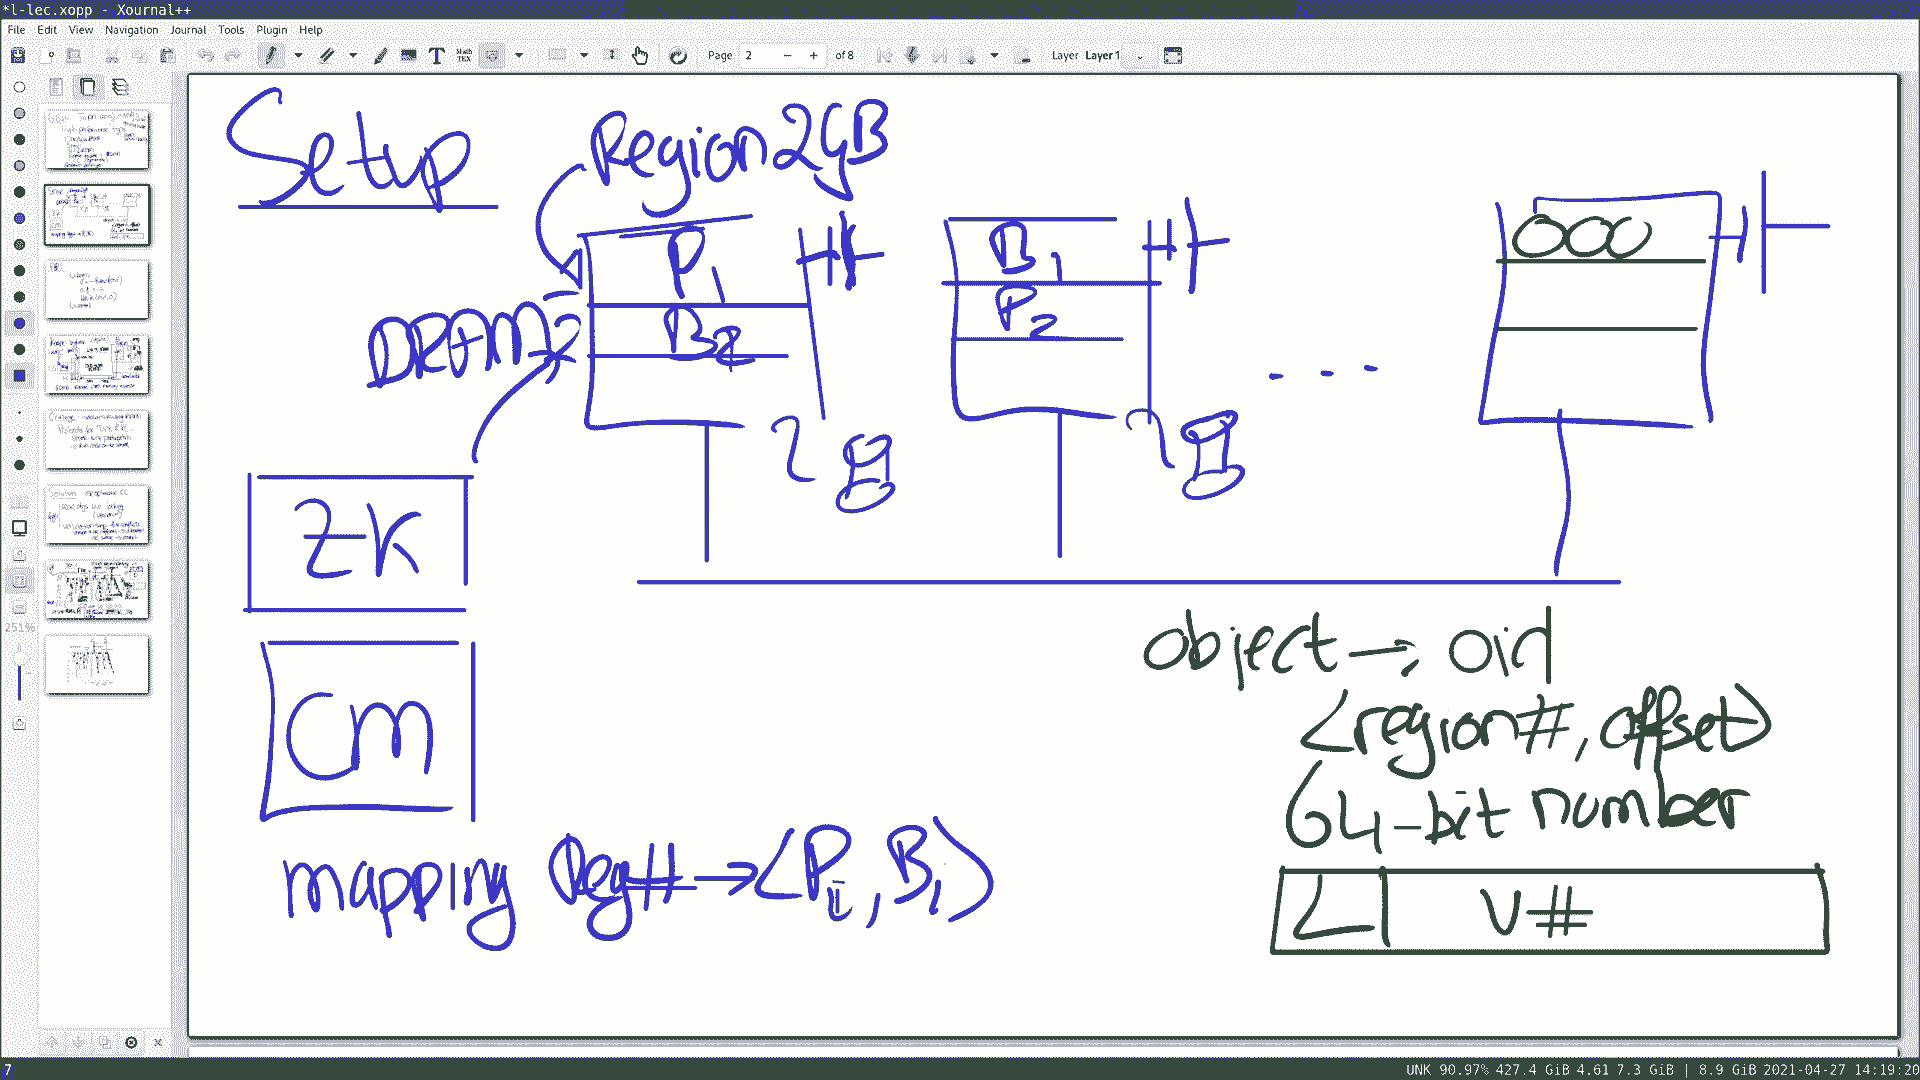 *l-lec.xopp - Xournal++
File Edit View Navigation Journal Tools Plugin Help
Page 2 of 8 Layer Layer 1
Setup
Region 2GB
P1
B2
B1
P2
DRAM
ZK
CM
object → oid
<region#, offset>
64-bit number
L V#
mapping Reg# → <P1, B1>
251%
7 UNK 90.97% 427.4 GiB 4.61 7.3 GiB | 8.9 GiB 2021-04-27 14:19:20